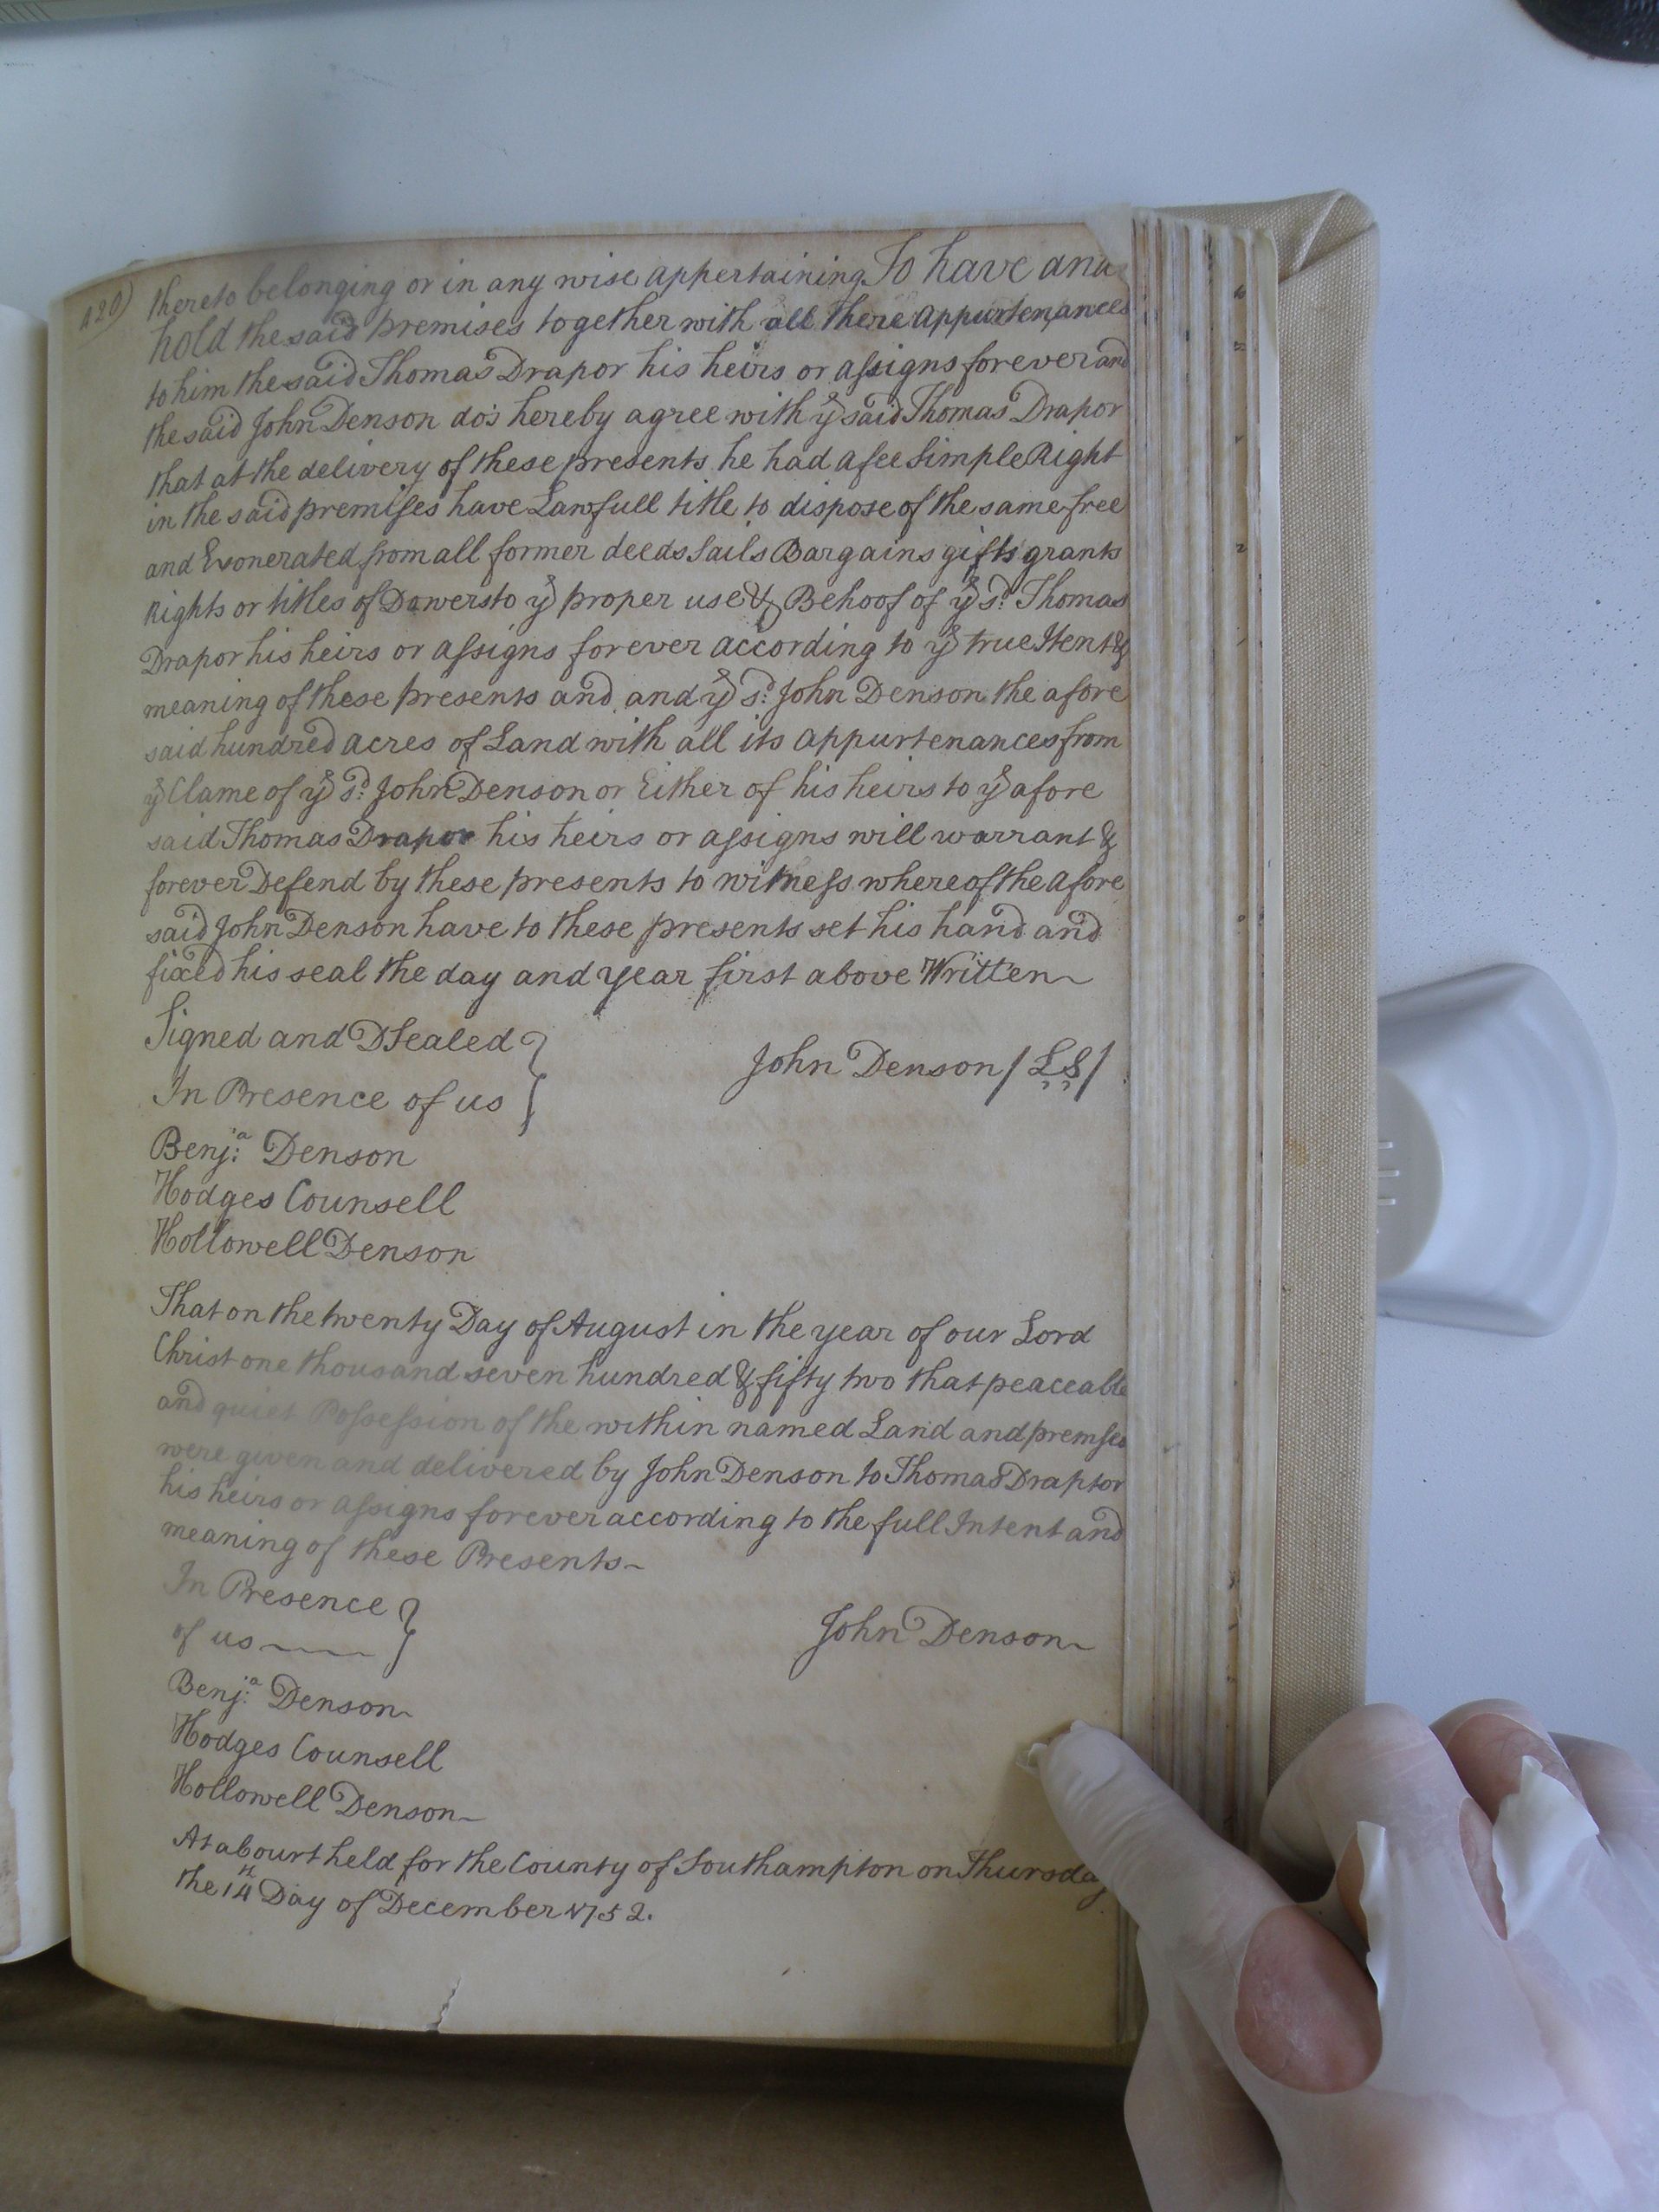 420)
thereto belonging or in any wise appertaining To have and
hold the said premises together with all there appurtenances
to him the said Thomas Drapor his heirs or assigns forever and
the said John Denson do's hereby agree with ye said Thomas Drapor
that at the delivery of these presents he had a fee Simple Right
in the said premises have Lawfull title to dispose of the same free
and Exonerated from all former deeds Sails Bargains gifts grants
Rights or titles of Dowers to ye proper use & Behoof of ye sd. Thomas
Drapor his heirs or assigns forever according to ye true Itent &
meaning of these presents and and ye sd. John Denson the afore
said hundred acres of Land with all its appurtenances from
ye Clame of ye sd. John Denson or Either of his heirs to ye afore
said Thomas Drapor his heirs or assigns will warrant &
forever Defend by these presents to witness whereof the afore
said John Denson have to these presents set his hand and
fixed his seal the day and year first above Written
Signed and DSealed
In Presence of us
John Denson / LS /
Benja. Denson
Hodges Counsell
Hollowell Denson
That on the twenty Day of August in the year of our Lord
Christ one thousand seven hundred & fifty two that peaceable
and quiet Possession of the within named Land and premses
were given and delivered by John Denson to Thomas Draptor
his heirs or assigns forever according to the full Intent and
meaning of these Presents
In Presence
of us
John Denson
Benja. Denson
Hodges Counsell
Hollowell Denson
At a Court held for the County of Southampton on Thursday
the 14th Day of December 1752.